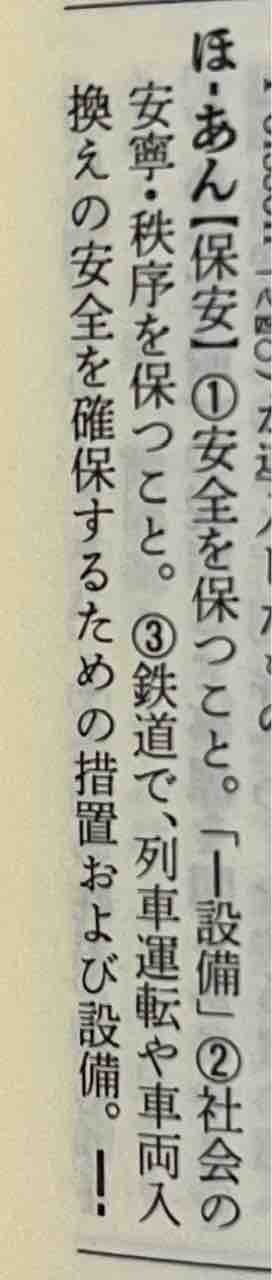 ほ‐あん【保安】①安全を保つこと。「―設備」②社会の
安寧・秩序を保つこと。③鉄道で、列車運転や車両入
換えの安全を確保するための措置および設備。